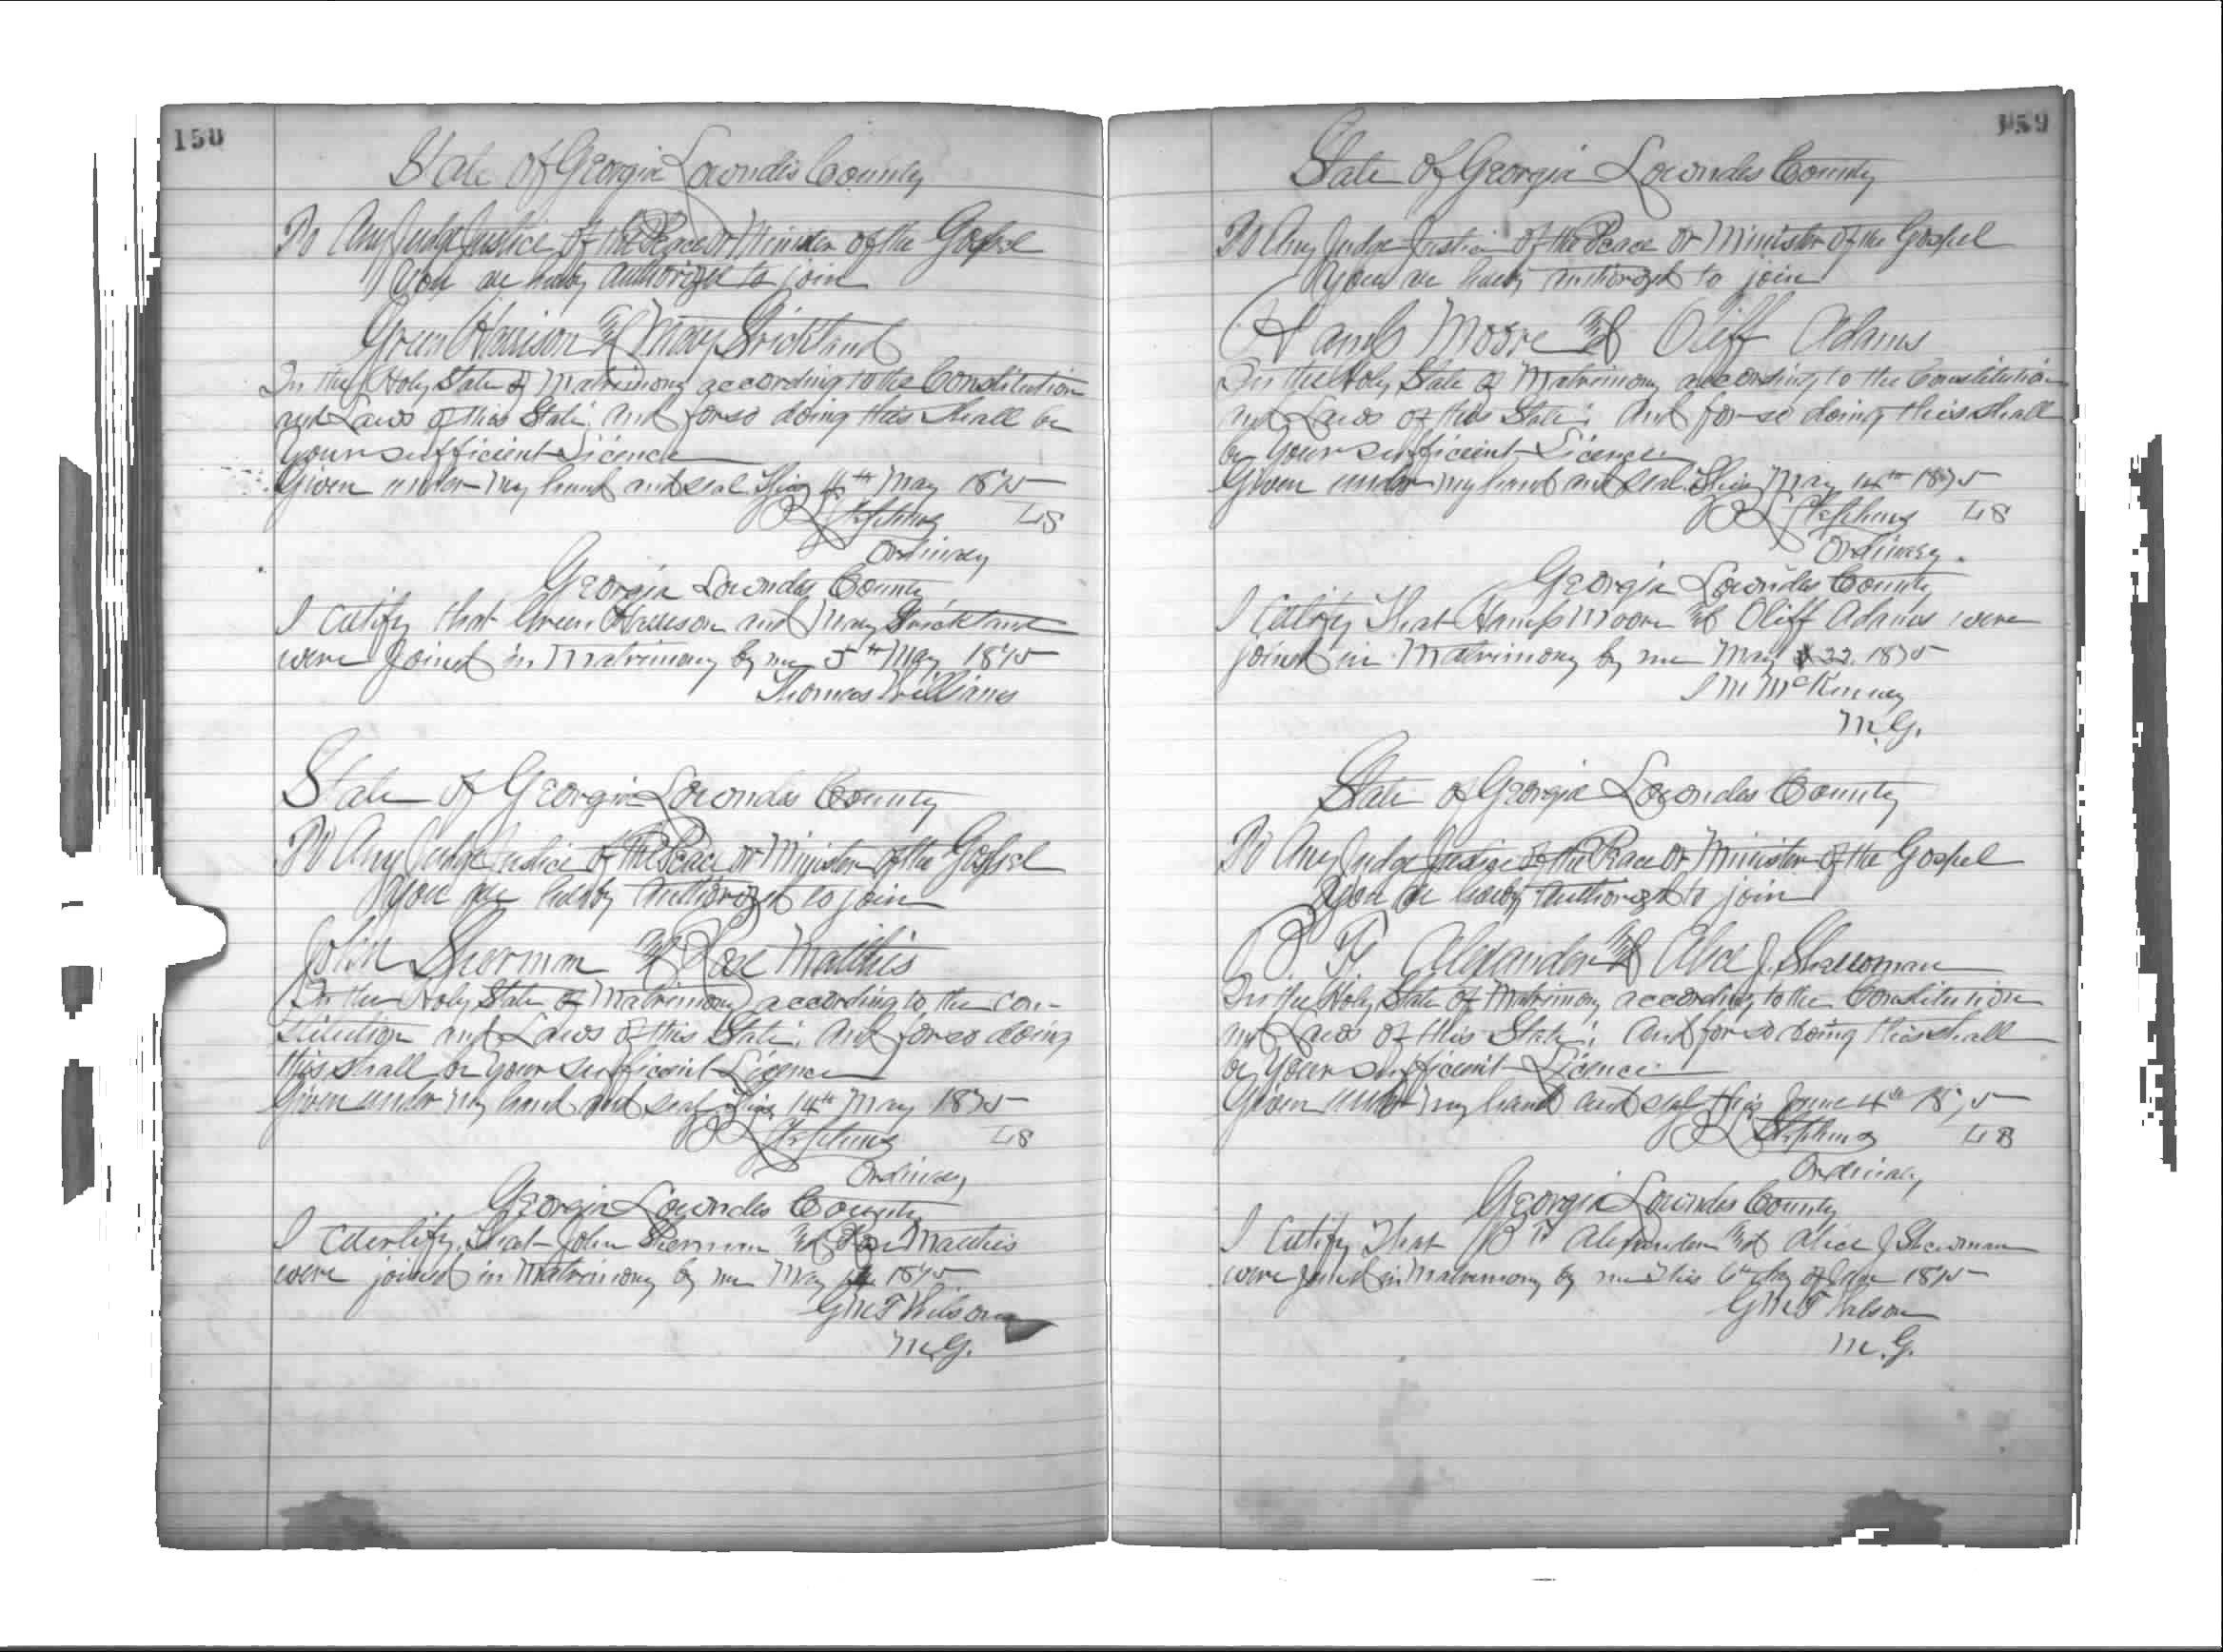 150
State of Georgia Lowndes County
To Any Judge Justice of the Peace or Minister of the Gospel
You are hereby authorized to join
Green Harrison And Mary Strickland
In the Holy State of Matrimony according to the Constitution
and Laws of this State, And for so doing this shall be
Your sufficient Licence
Given under my hand and seal this 4th May 1875
Stephens LS
Ordinary
Georgia Lowndes County
I certify that Green Harrison and Mary Strickland
were joined in Matrimony by me 5th May 1875
Thomas Williams
State of Georgia Lowndes County
To Any Judge Justice of the Peace or Minister of the Gospel
You are hereby authorized to join
John Sherman And Matthis
In the Holy State of Matrimony according to the con-
stitution and Laws of this State; And for so doing
this shall be Your sufficient Licence
Given under my hand and seal this 14th May 1875
Stephens LS
Ordinary
Georgia Lowndes County
I certify that John Sherman And Matthis
were joined in Matrimony by me May 1875
G M T Wilson
M.G.
159
State of Georgia Lowndes County
To Any Judge Justice of the Peace or Minister of the Gospel
You are hereby authorized to join
Hamb Moore And Oliff Adams
In the Holy State of Matrimony according to the Constitution
and Laws of this State; And for so doing this shall
be Your sufficient Licence
Given under my hand and seal this May 14th 1875
Stephens LS
Ordinary.
Georgia Lowndes County
I Certify That Hamb Moore And Oliff Adams were
joined in Matrimony by me May 22. 1875
McKinney
M.G.
State of Georgia Lowndes County
To Any Judge Justice of the Peace or Minister of the Gospel
You are hereby authorized to join
Alexander And Alice J.
In the Holy State of Matrimony according to the Constitution
and Laws of this State; And for so doing this shall
be Your sufficient Licence
Given under my hand and seal this June 4th 1875
Stephens LS
Ordinary
Georgia Lowndes County
I Certify That Alexander And Alice J
were joined in Matrimony by me this 6th day of June 1875
G M T Wilson
M.G.